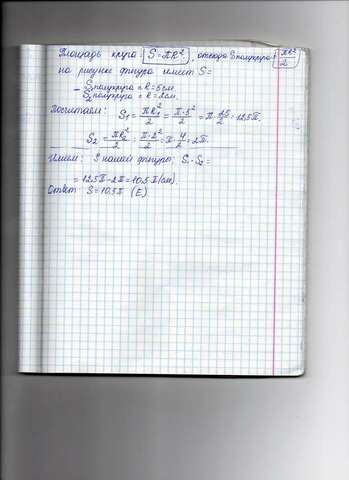 Площадь круга S=πR², отсюда S полукруга = πR²/2
на рисунке фигура имеет S=
S₁ полукруга с R=5см
− S₂ полукруга с R=2см.
Посчитаем: S₁ = πR₁²/2 = π·5²/2 = π·25/2 = 12,5π.
S₂ = πR₂²/2 = π·2²/2 = π·4/2 = 2π.
Имеем: S нашей фигуры: S₁-S₂=
= 12,5π-2π=10,5π(см).
Ответ: S=10,5π (E)